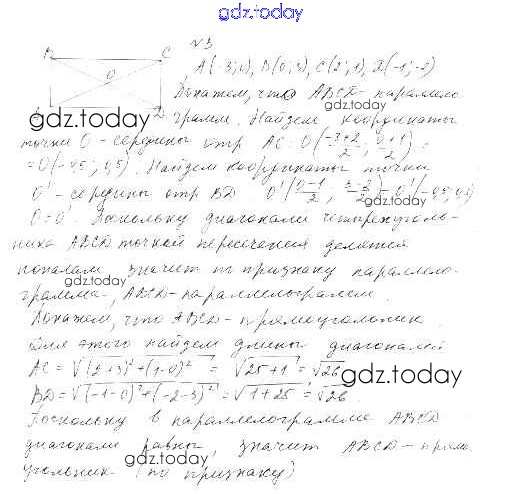 gdz.today
№3
B C
O
A(-3;0), B(0;3), C(2;1), D(-1;-2)
Докажем, что ABCD - паралело
D
gdz.today
грамм. Найдем координаты
точки O - середины отр AC: O(-3+2/2; 0+1/2) =
= O(-0,5; 0,5). Найдем координаты точки
O' - середины отр BD O'(0-1/2; 3-2/2) = O'(-0,5; 0,5)
O = O'. Поскольку диагонали четырехуголь-
ника ABCD точкой пересечения делятся
gdz.today
попалам, значит по признаку параллело-
грамма, ABCD - параллелограмм.
Докажем, что ABCD - прямоугольник.
Для этого найдем длины диагоналей
AC = √(2+3)²+(1-0)² = √25+1 = √26
gdz.today
BD = √(-1-0)²+(-2-3)² = √1+25 = √26.
Поскольку в параллелограмме ABCD
диагонали равны, значит ABCD - прям
gdz.today
угольник (по признаку)